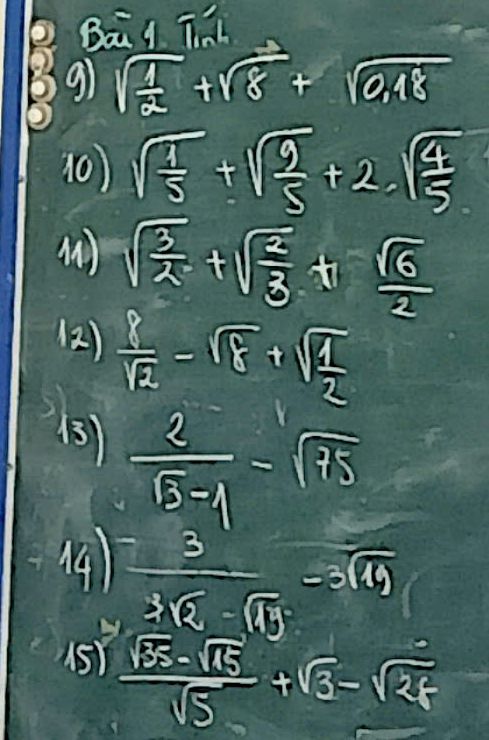 Bài 1. Tính
9) √(1/2) + √8 + √(0,18)
10) √(1/5) + √(9/5) + 2.√(4/5)
11) √(3/2) + √(2/3) + √6/2
12) 8/√2 - √8 + √(1/2)
13) 2/(√3-1) - √75
14) 3/(3√2 - √19) - 3√19
15) (√35 - √15)/√5 + √3 - √28